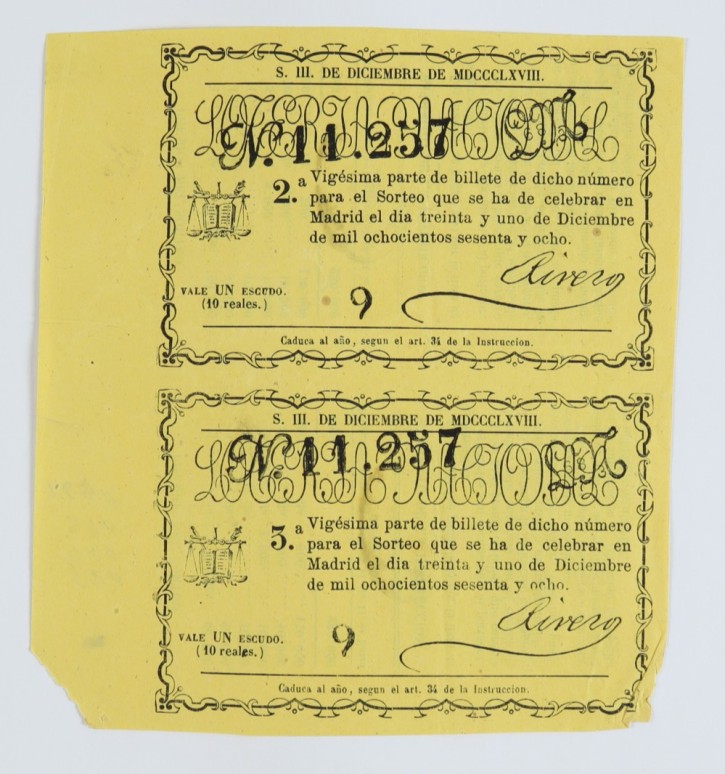 S. III. DE DICIEMBRE DE MDCCCLXVIII.
LOTERIA NACIONAL
N. 11.257
2.a Vigésima parte de billete de dicho número
para el Sorteo que se ha de celebrar en
Madrid el dia treinta y uno de Diciembre
de mil ochocientos sesenta y ocho.
Rivero
VALE UN ESCUDO.
(10 reales.)
9
Caduca al año, segun el art. 34 de la Instruccion.
S. III. DE DICIEMBRE DE MDCCCLXVIII.
LOTERIA NACIONAL
N. 11.257
3.a Vigésima parte de billete de dicho número
para el Sorteo que se ha de celebrar en
Madrid el dia treinta y uno de Diciembre
de mil ochocientos sesenta y ocho.
Rivero
VALE UN ESCUDO.
(10 reales.)
9
Caduca al año, segun el art. 34 de la Instruccion.